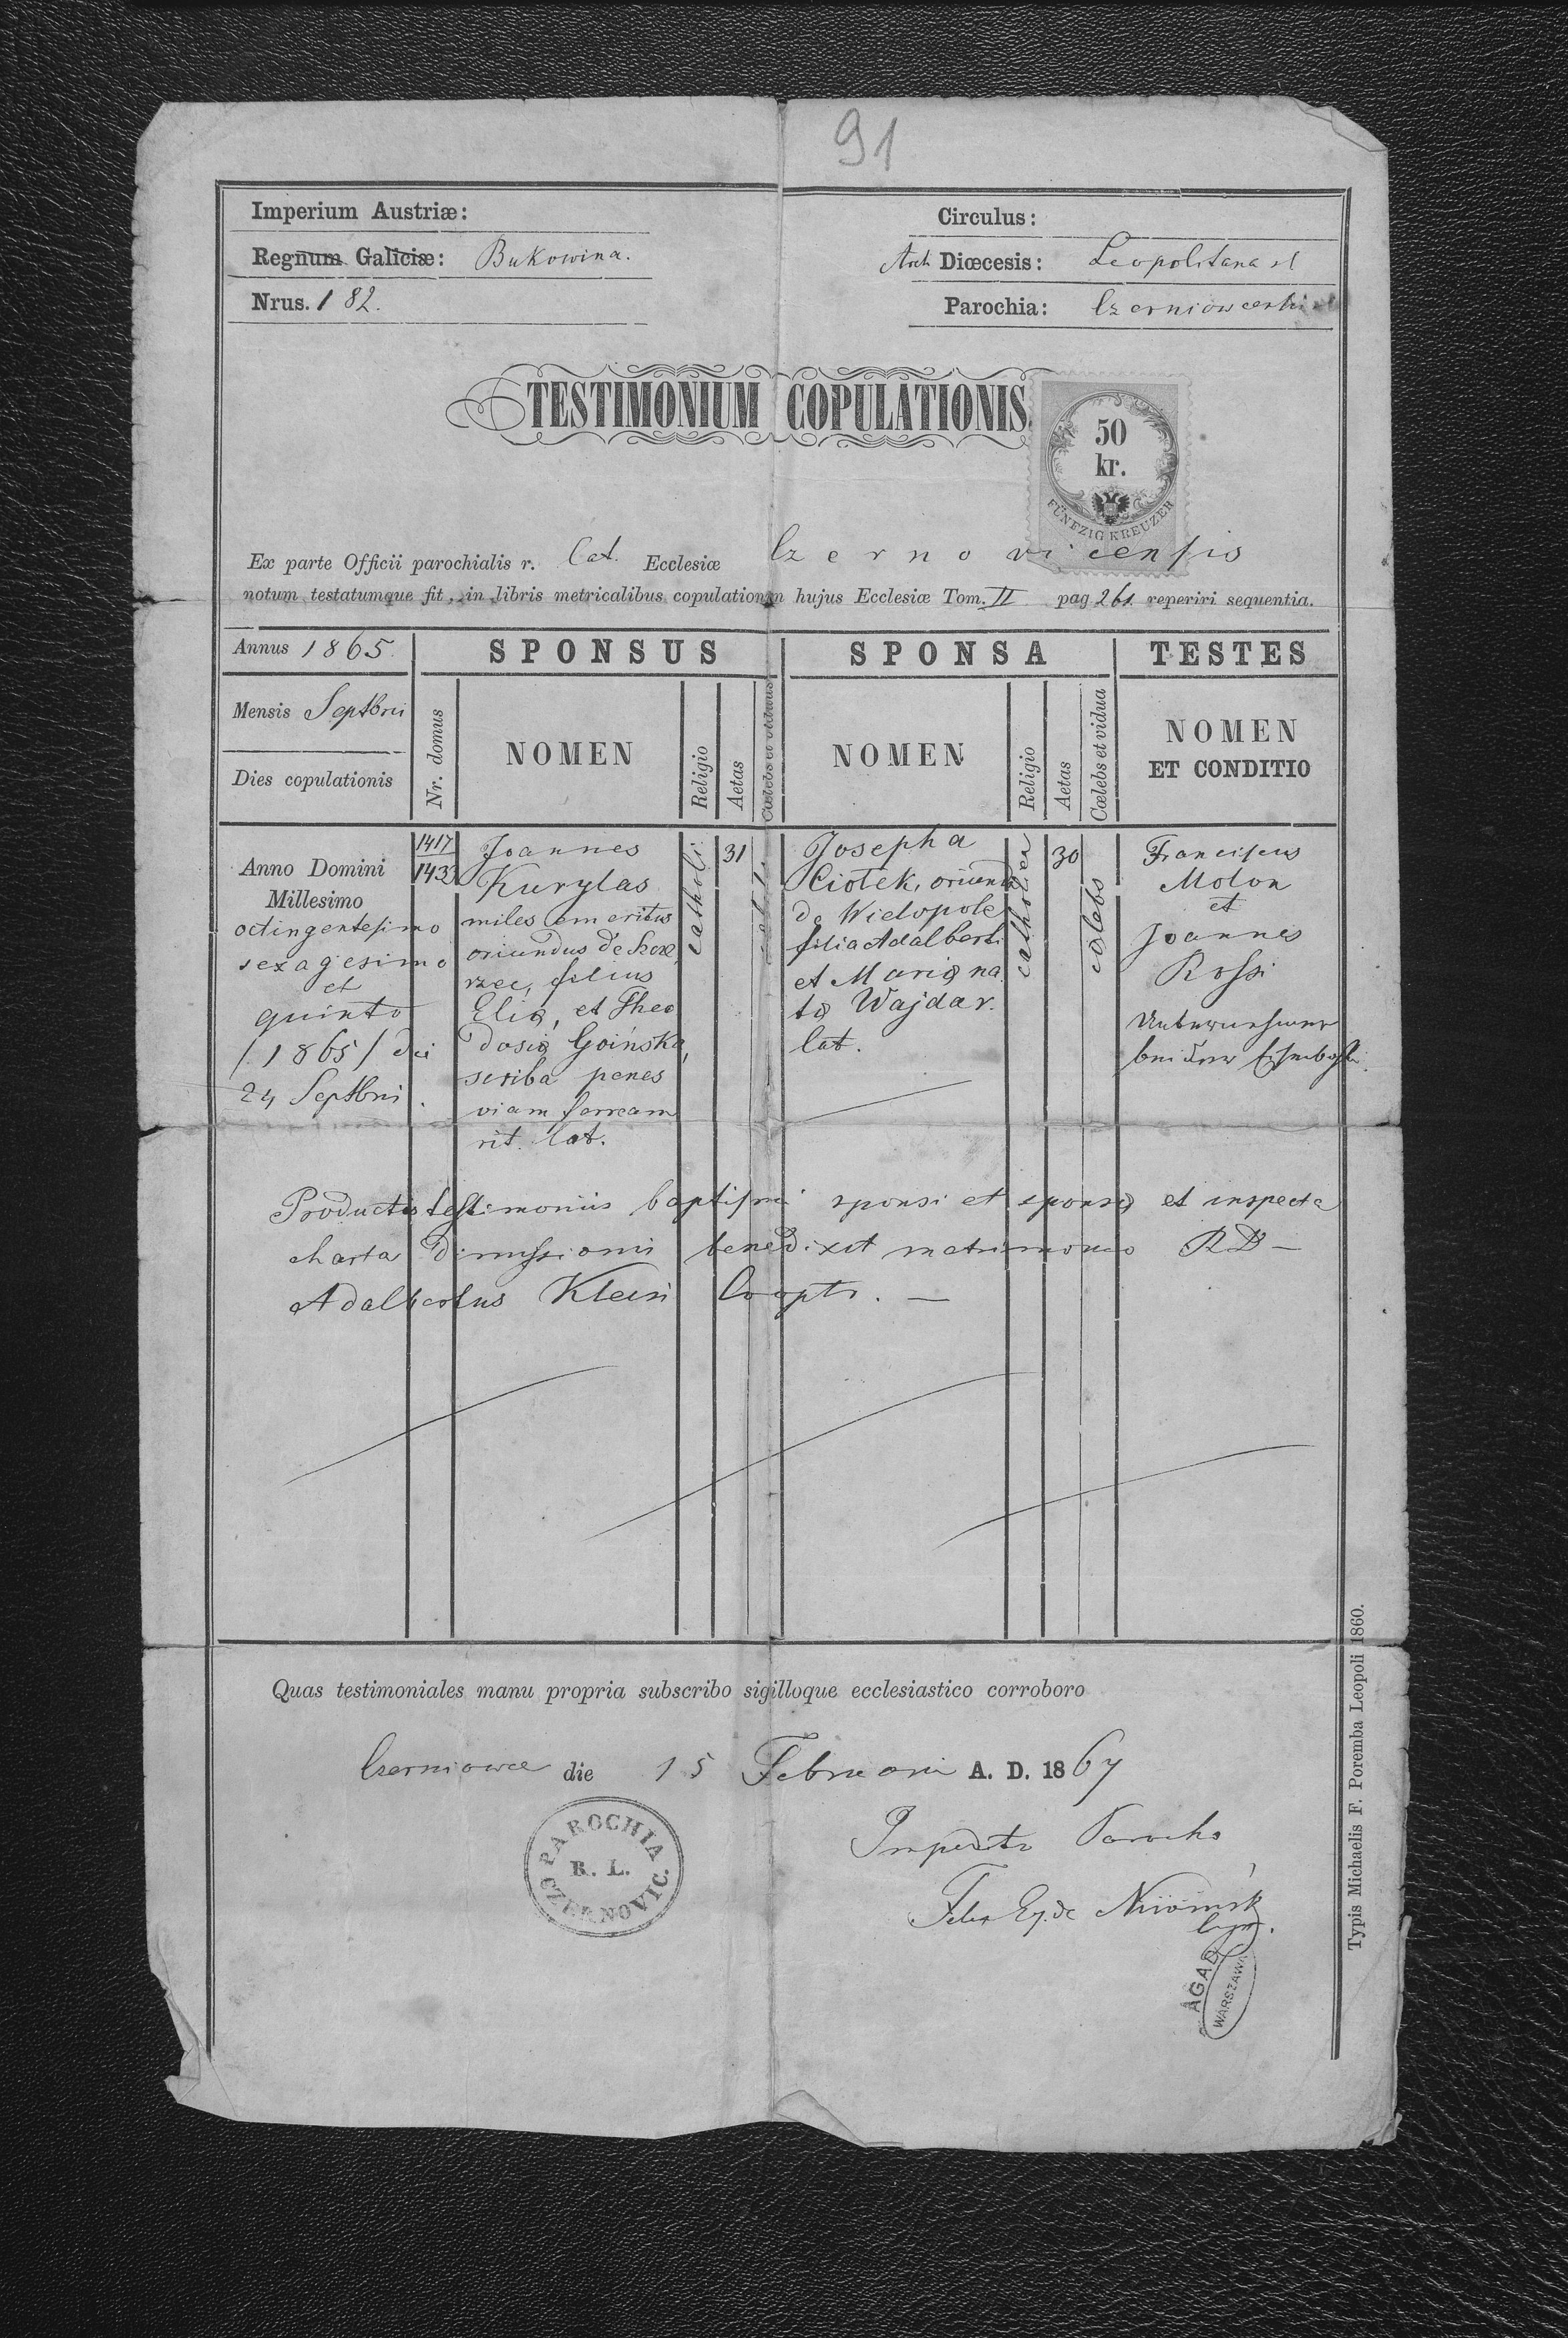 91
Imperium Austriæ:
Circulus:
Regnum Galiciæ: Bukowina.
Arch Diœcesis: Leopolitana
Nrus. 182.
Parochia:
TESTIMONIUM COPULATIONIS
50
kr.
FÜNFZIG KREUZER
Ex parte Officii parochialis r. Lat. Ecclesiæ Czernovicensis
notum testatumque fit, in libris metricalibus copulationum hujus Ecclesiæ Tom. II pag 261. reperiri sequentia.
Annus 1865.
SPONSUS
SPONSA
TESTES
Mensis Septbris
Dies copulationis
Nr. domus
NOMEN
Religio
Aetas
Cœlebs et viduus
NOMEN
Religio
Aetas
Cœlebs et vidua
NOMEN
ET CONDITIO
Anno Domini
Millesimo
octingentesimo
sexagesimo
et
quinto
/1865/ die
24 Septbris.
1417
1433
Joannes
Kurylas
miles emeritus
oriundus de
filius
Eliæ, et Theo
dosiæ Goińska,
scriba penes
viam ferream
rit. lat.
catholi.
31
Josepha
Ciołek, oriunda
de Wielopole
filia Adalberti
et Mariæ na
tæ Wajdar.
lat.
catholica
30
cœlebs
Franciscus
Molon
et
Joannes
Rossi
Productis testimoniis baptismi sponsi et sponsæ et inspecta
charta dimissionis benedixit matrimonio RD —
Adalbertus Klein Cooptr. —
Quas testimoniales manu propria subscribo sigilloque ecclesiastico corroboro
Czerniowce die 15 Februarii A. D. 1867
PAROCHIA
R. L.
CZERNOVIC.
Impedito Parocho
AGAD
WARSZAWA
Typis Michaelis F. Poremba Leopoli 1860.